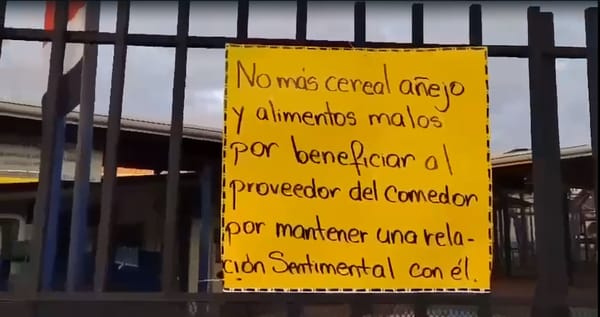 No más cereal añejo
y alimentos malos
por beneficiar al
proveedor del Comedor
por mantener una rela-
ción Sentimental con él.